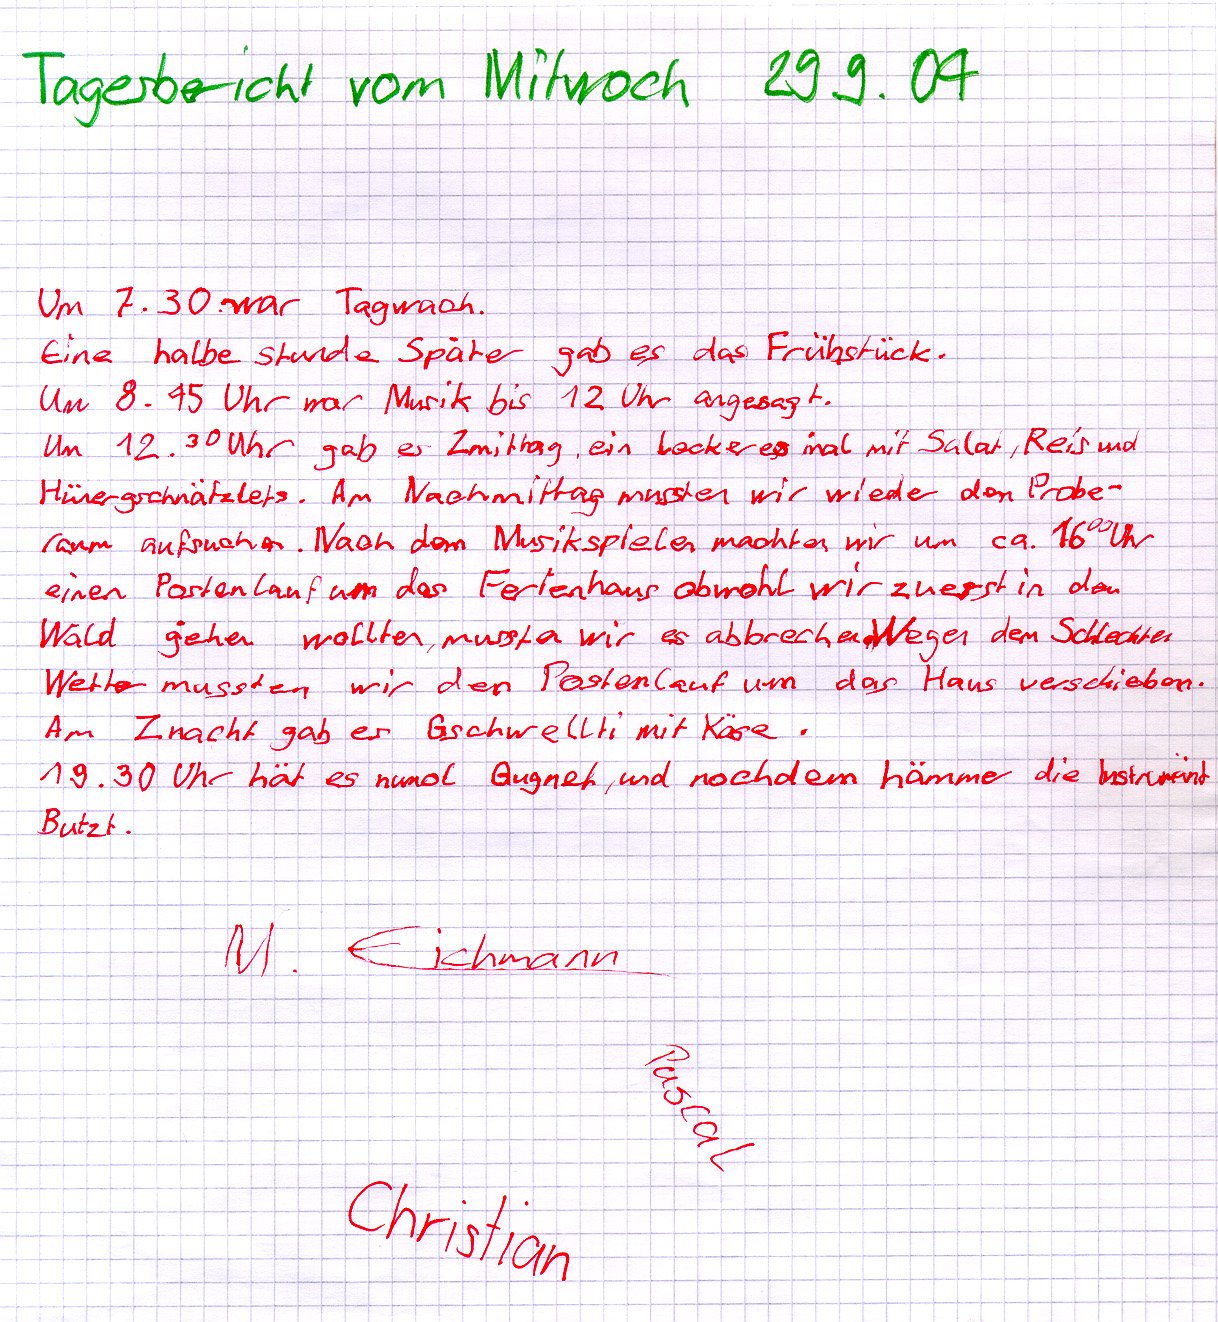 Tagesbericht vom Mitwoch 29 9. 04
Um 7.30 war Tagwach.
Eine halbe stunde Später gab es das Frühstück.
Um 8.45 Uhr war Musik bis 12 Uhr angesagt.
Um 12.30 Uhr gab es Zmittag, ein Lockeres mal mit Salat, Reis und
Hünergschnätzlets. Am Nachmittag mussten wir wieder den Probe-
raum aufsuchen. Nach dem Musikspielen machten wir um ca. 16 00 Uhr
einen Postenlauf um das Ferienhaus obwohl wir zuerst in den
Wald gehen wollten, mussten wir es abbrechen Wegen dem Schlechten
Wetter mussten wir den Postenlauf um das Haus verschieben.
Am Znacht gab es Gschwellti mit Käse.
19.30 Uhr hät es numol Gugnet, und nochdem hämmer die Instrument
Butzt.
M. Eichmann
Pascal
Christian